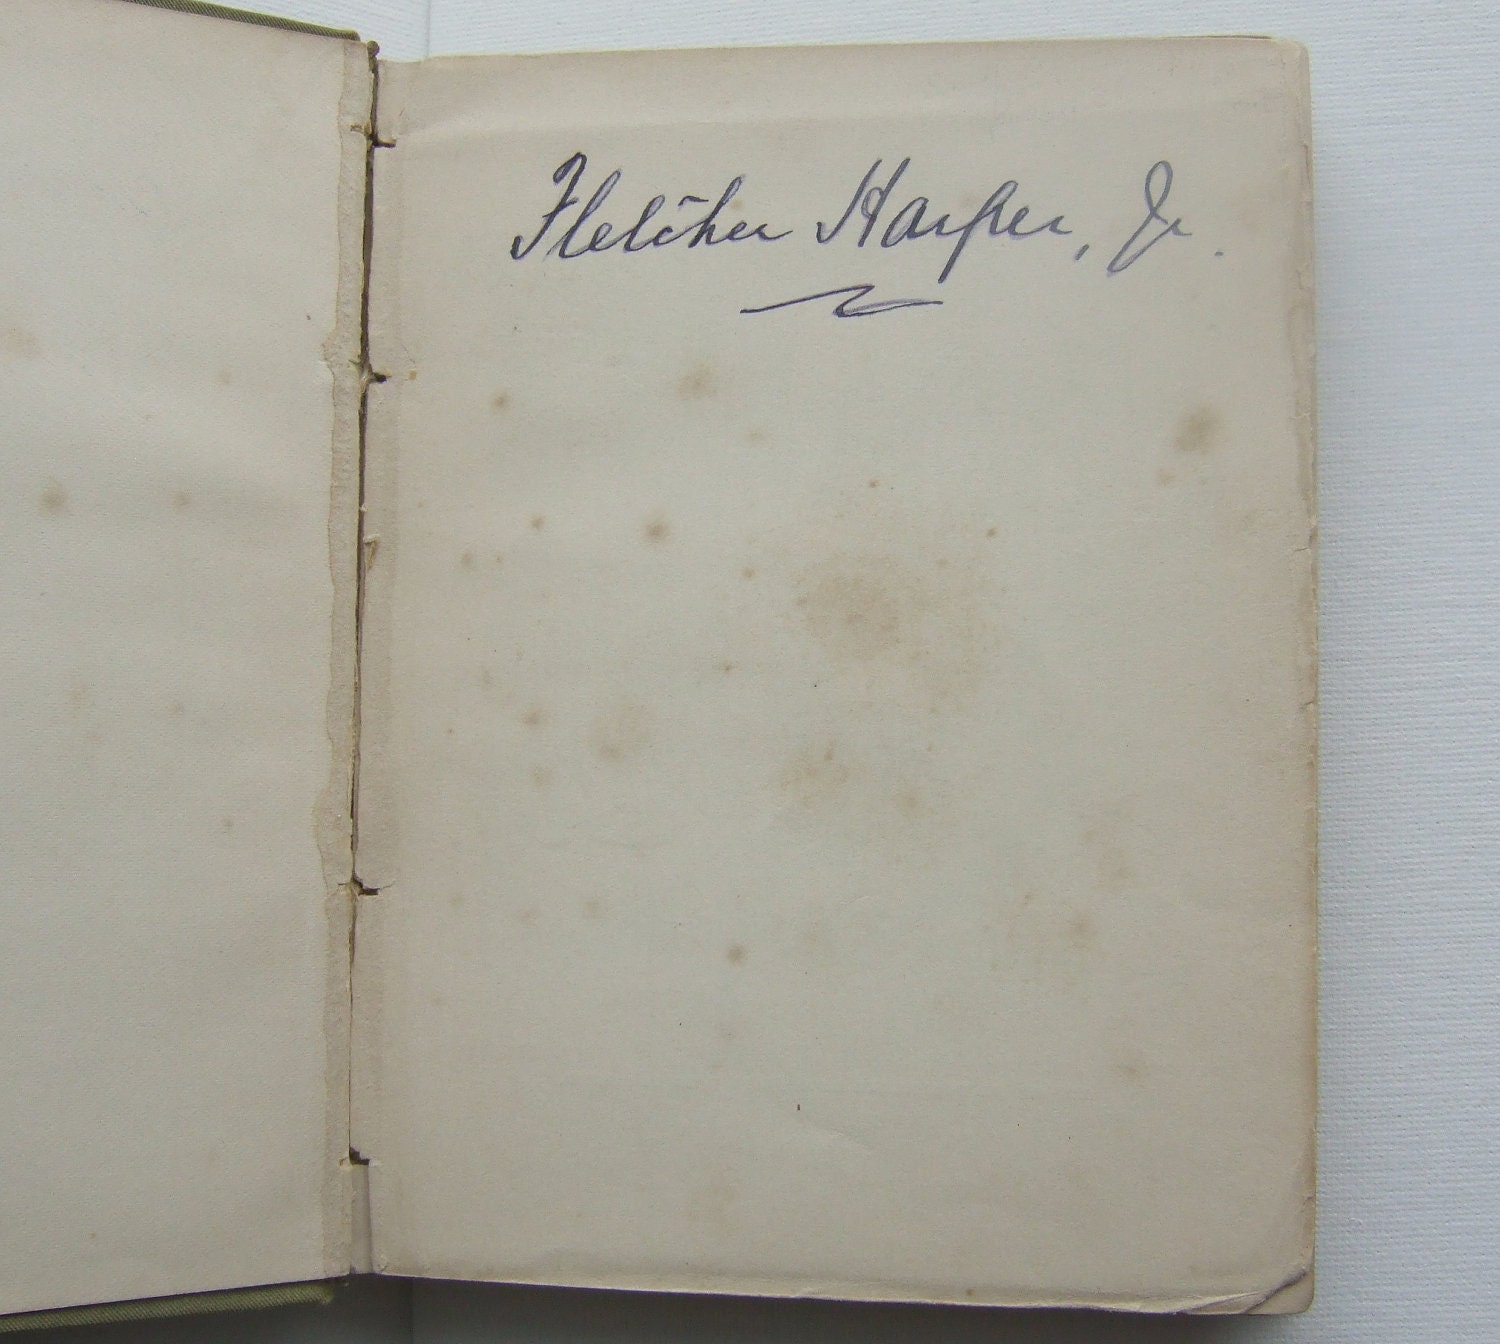 Fletcher Harper, Jr.